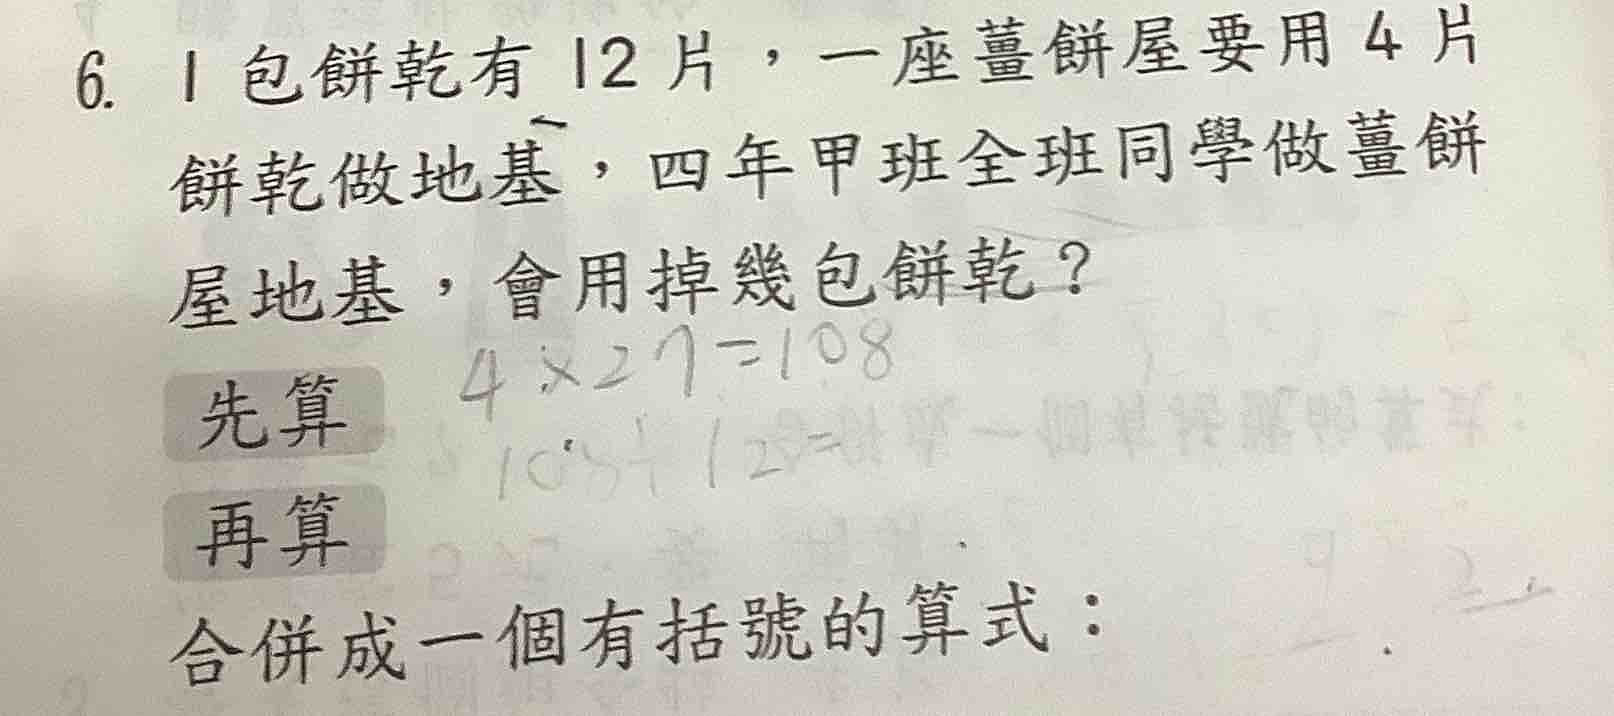 6. 1 包餅乾有 12 片，一座薑餅屋要用 4 片
餅乾做地基，四年甲班全班同學做薑餅
屋地基，會用掉幾包餅乾？
4×27=108
先算
108÷12=
再算
合併成一個有括號的算式：